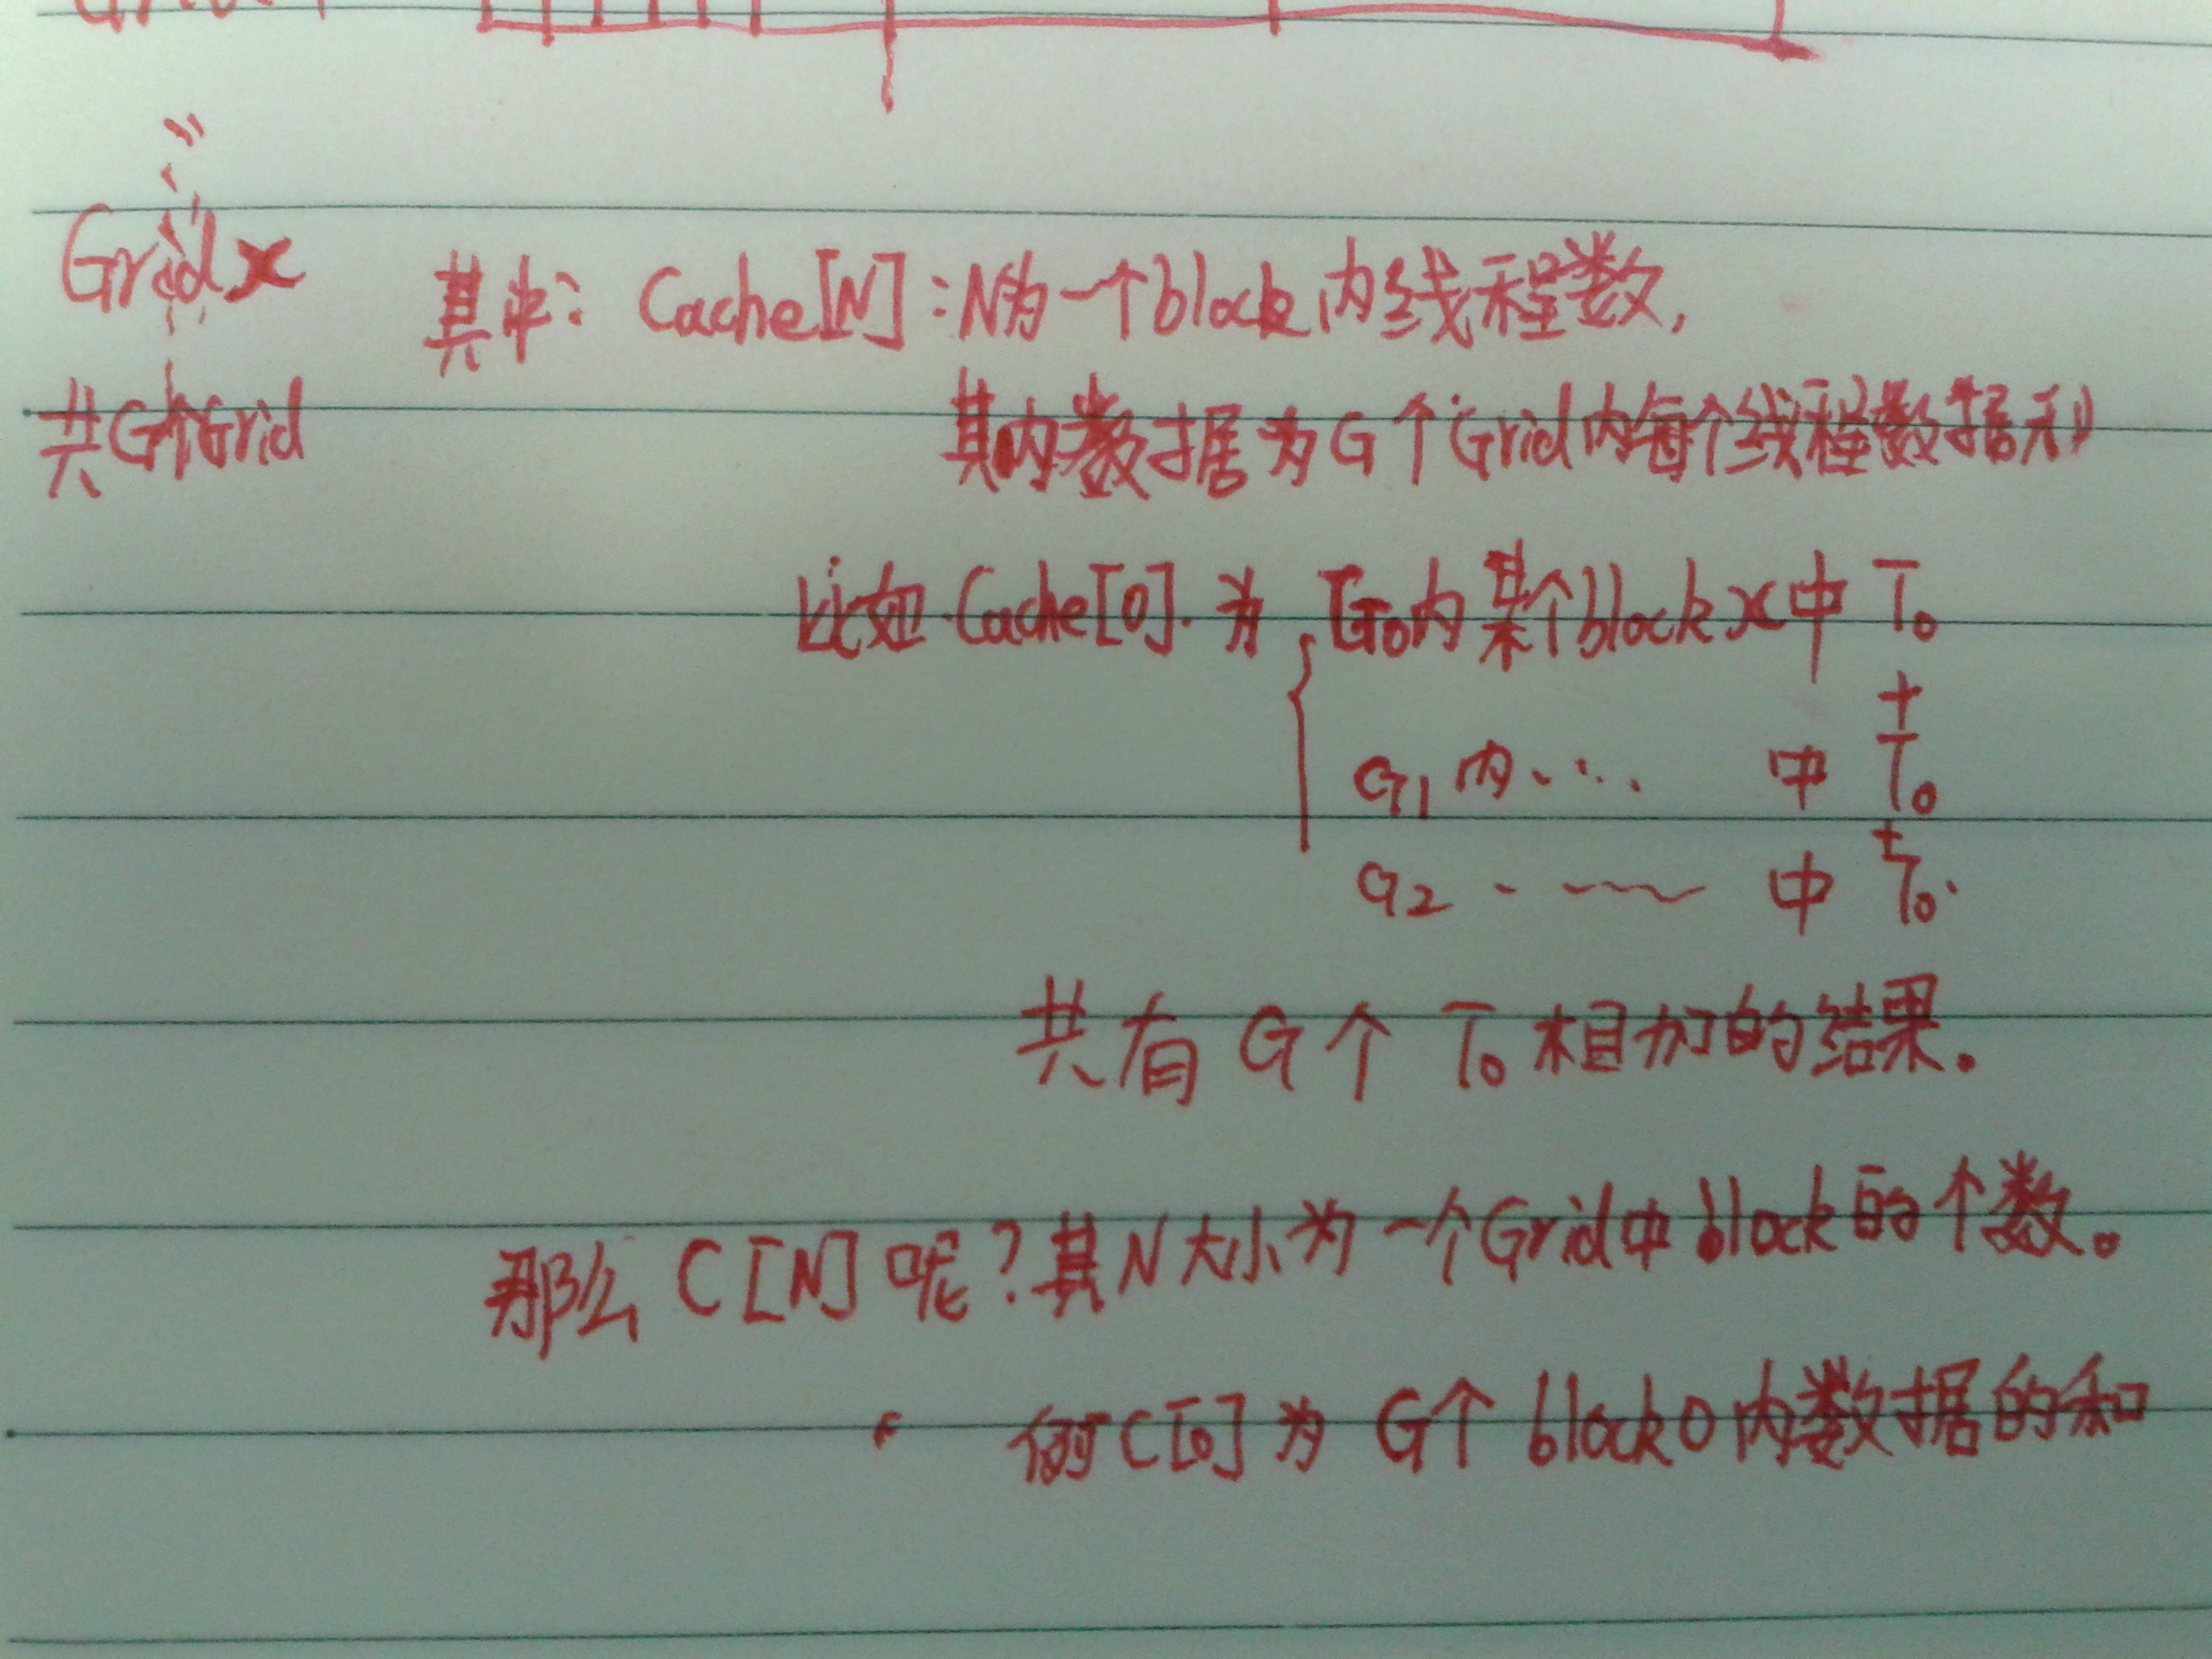 Grid x
共G个Grid
其中: Cache[N]:N为一个block内线程数,
其内数据为G个Grid内每个线程数据和
比如 Cache[0] 为 G0内某个block x中 T0
+
G1 内 ..... 中 T0
+
G2 ... 中 T0.
共有 G个 T0 相加的结果.
那么 C[N]呢?其N大小为一个Grid中block的个数。
例 C[0] 为 G个 block0内数据的和